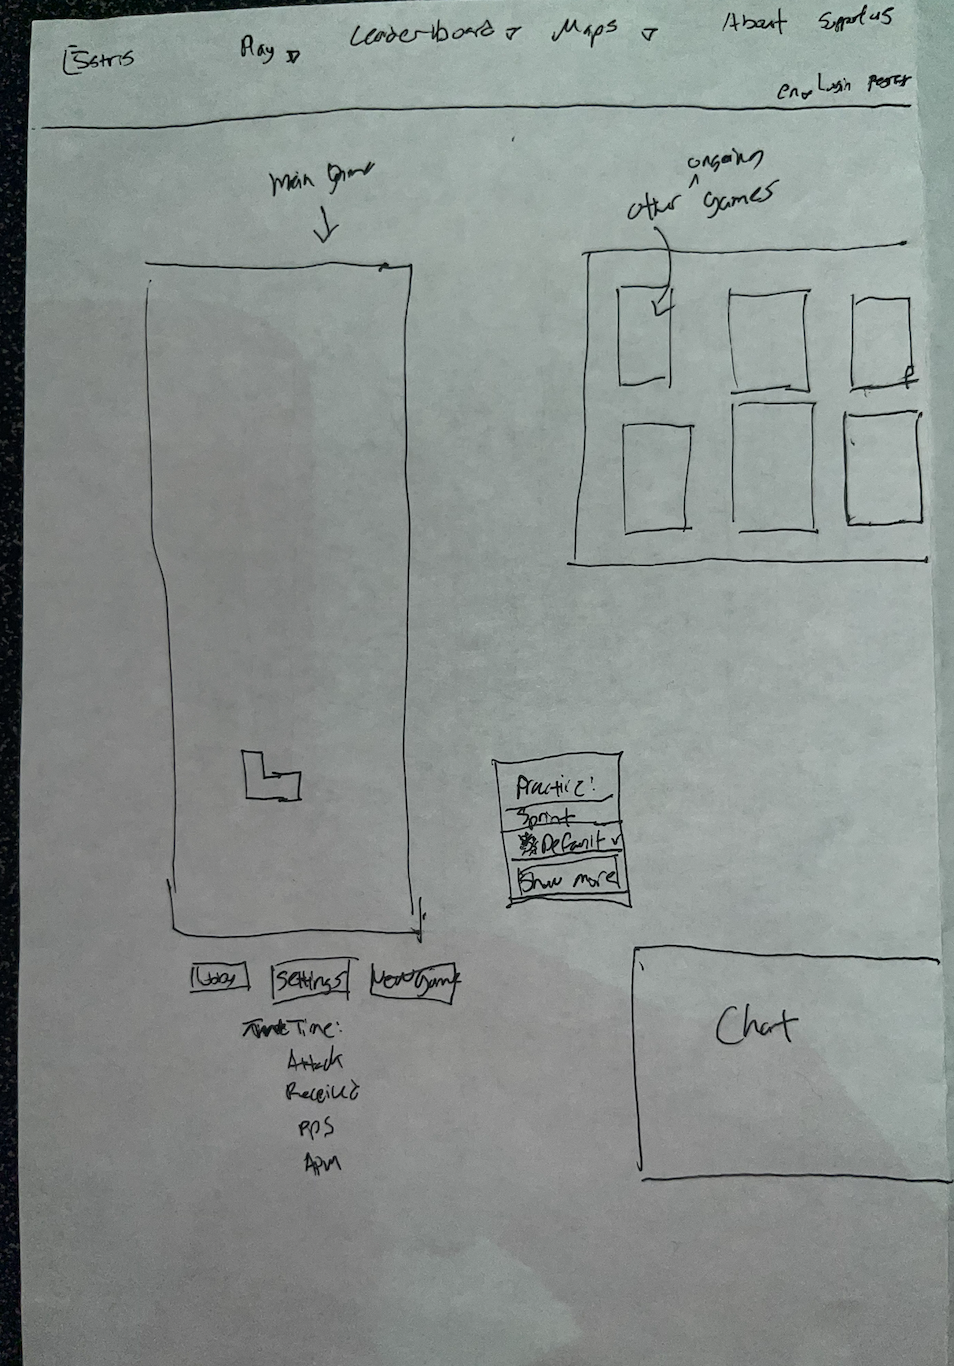 Play Leaderboard Maps About Support us
en Login
Main Game
ongoing
other games
Practice:
Sprint
Default
Show more
Lobby Settings New Game
Time:
Attack
Received
PPS
APM
Chat